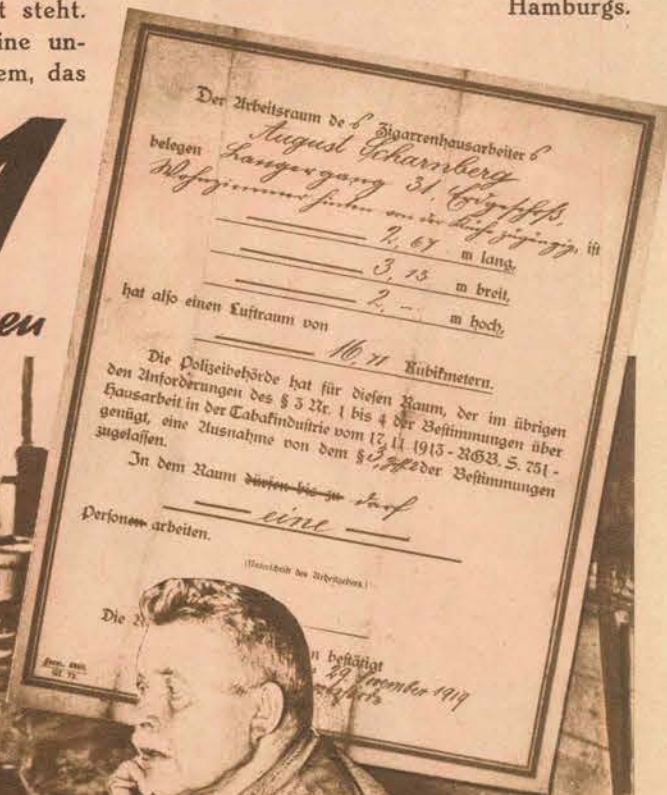 t steht.
ine un-
em, das
Hamburgs.
en
Der Arbeitsraum des Zigarrenhausarbeiters
August Scharnberg
belegen Langergang 31, Erdgeschoß,
Wohnzimmer hinten von der Küche zugängig, ist
2,67 m lang,
3,13 m breit,
2,-- m hoch,
hat also einen Luftraum von
16,71 Kubikmetern.
Die Polizeibehörde hat für diesen Raum, der im übrigen
den Anforderungen des § 3 Nr. 1 bis 4 der Bestimmungen über
Hausarbeit in der Tabakindustrie vom 17. 11 1913 - RGB. S. 751 -
genügt, eine Ausnahme von dem § 3, der Bestimmungen
zugelassen.
In dem Raum dürfen bis zu darf
eine
Personen arbeiten.
(Unterschrift des Arbeitgebers.)
Die
n bestätigt
29 November 1919